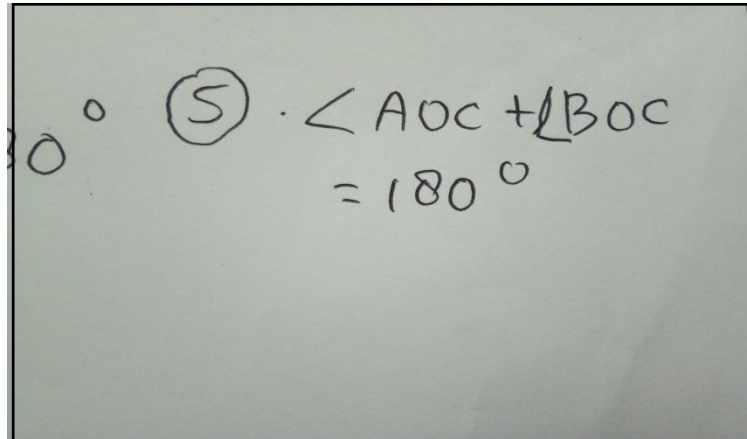 30° ⑤ . ∠AOC + ∠BOC
= 180°